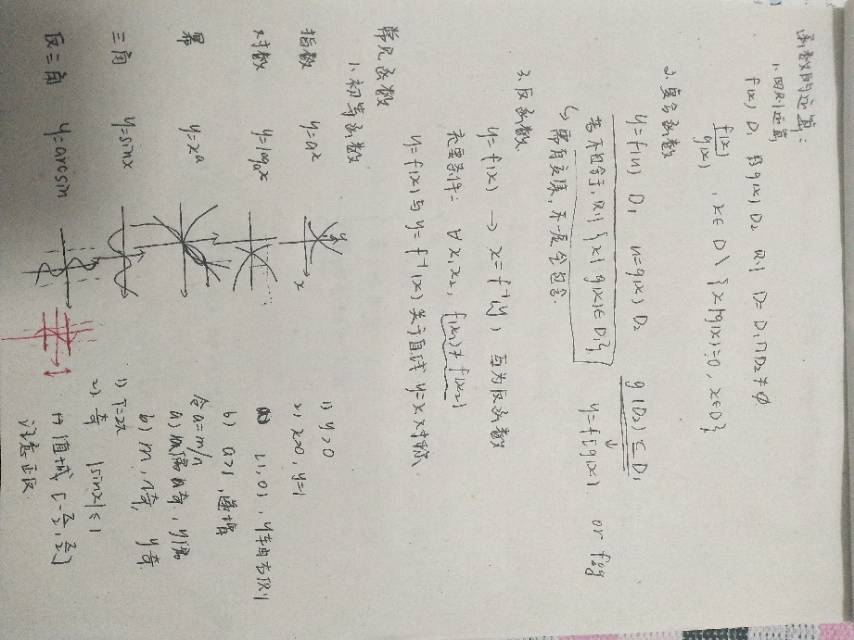 函数的运算:
1.四则运算
f(x) D₁ 与g(x) D₂ 则 D=D₁∩D₂≠∅
f(x)/g(x) , x∈D\{x|g(x)=0, x∈D}
2.复合函数
y=f(u) D₁ u=g(x) D₂ g(D₂)⊆D₁
若不包含于,则{x|g(x)∈D₁} y=f[g(x)] or f∘g
↳ 需有交集,不一定全包含.
3.反函数
y=f(x) → x=f⁻¹(y) 互为反函数
充要条件: ∀x₁x₂, f(x₁)≠f(x₂)
y=f(x)与y=f⁻¹(x)关于直线y=x对称.
常见函数
1.初等函数
指数 y=aˣ y x 1) y>0
2) x=0, y=1
对数 y=logₐx (1,0) , y轴右侧
b) a>1, 递增
幂 y=xᵃ 令a=m/n
a) m偶n奇, y偶
b) m, n奇, y奇
三角 y=sinx 1) T=2π
2) 奇 |sinx|≤1
反三角 y=arcsin 值域[-π/2, π/2]
注意正反